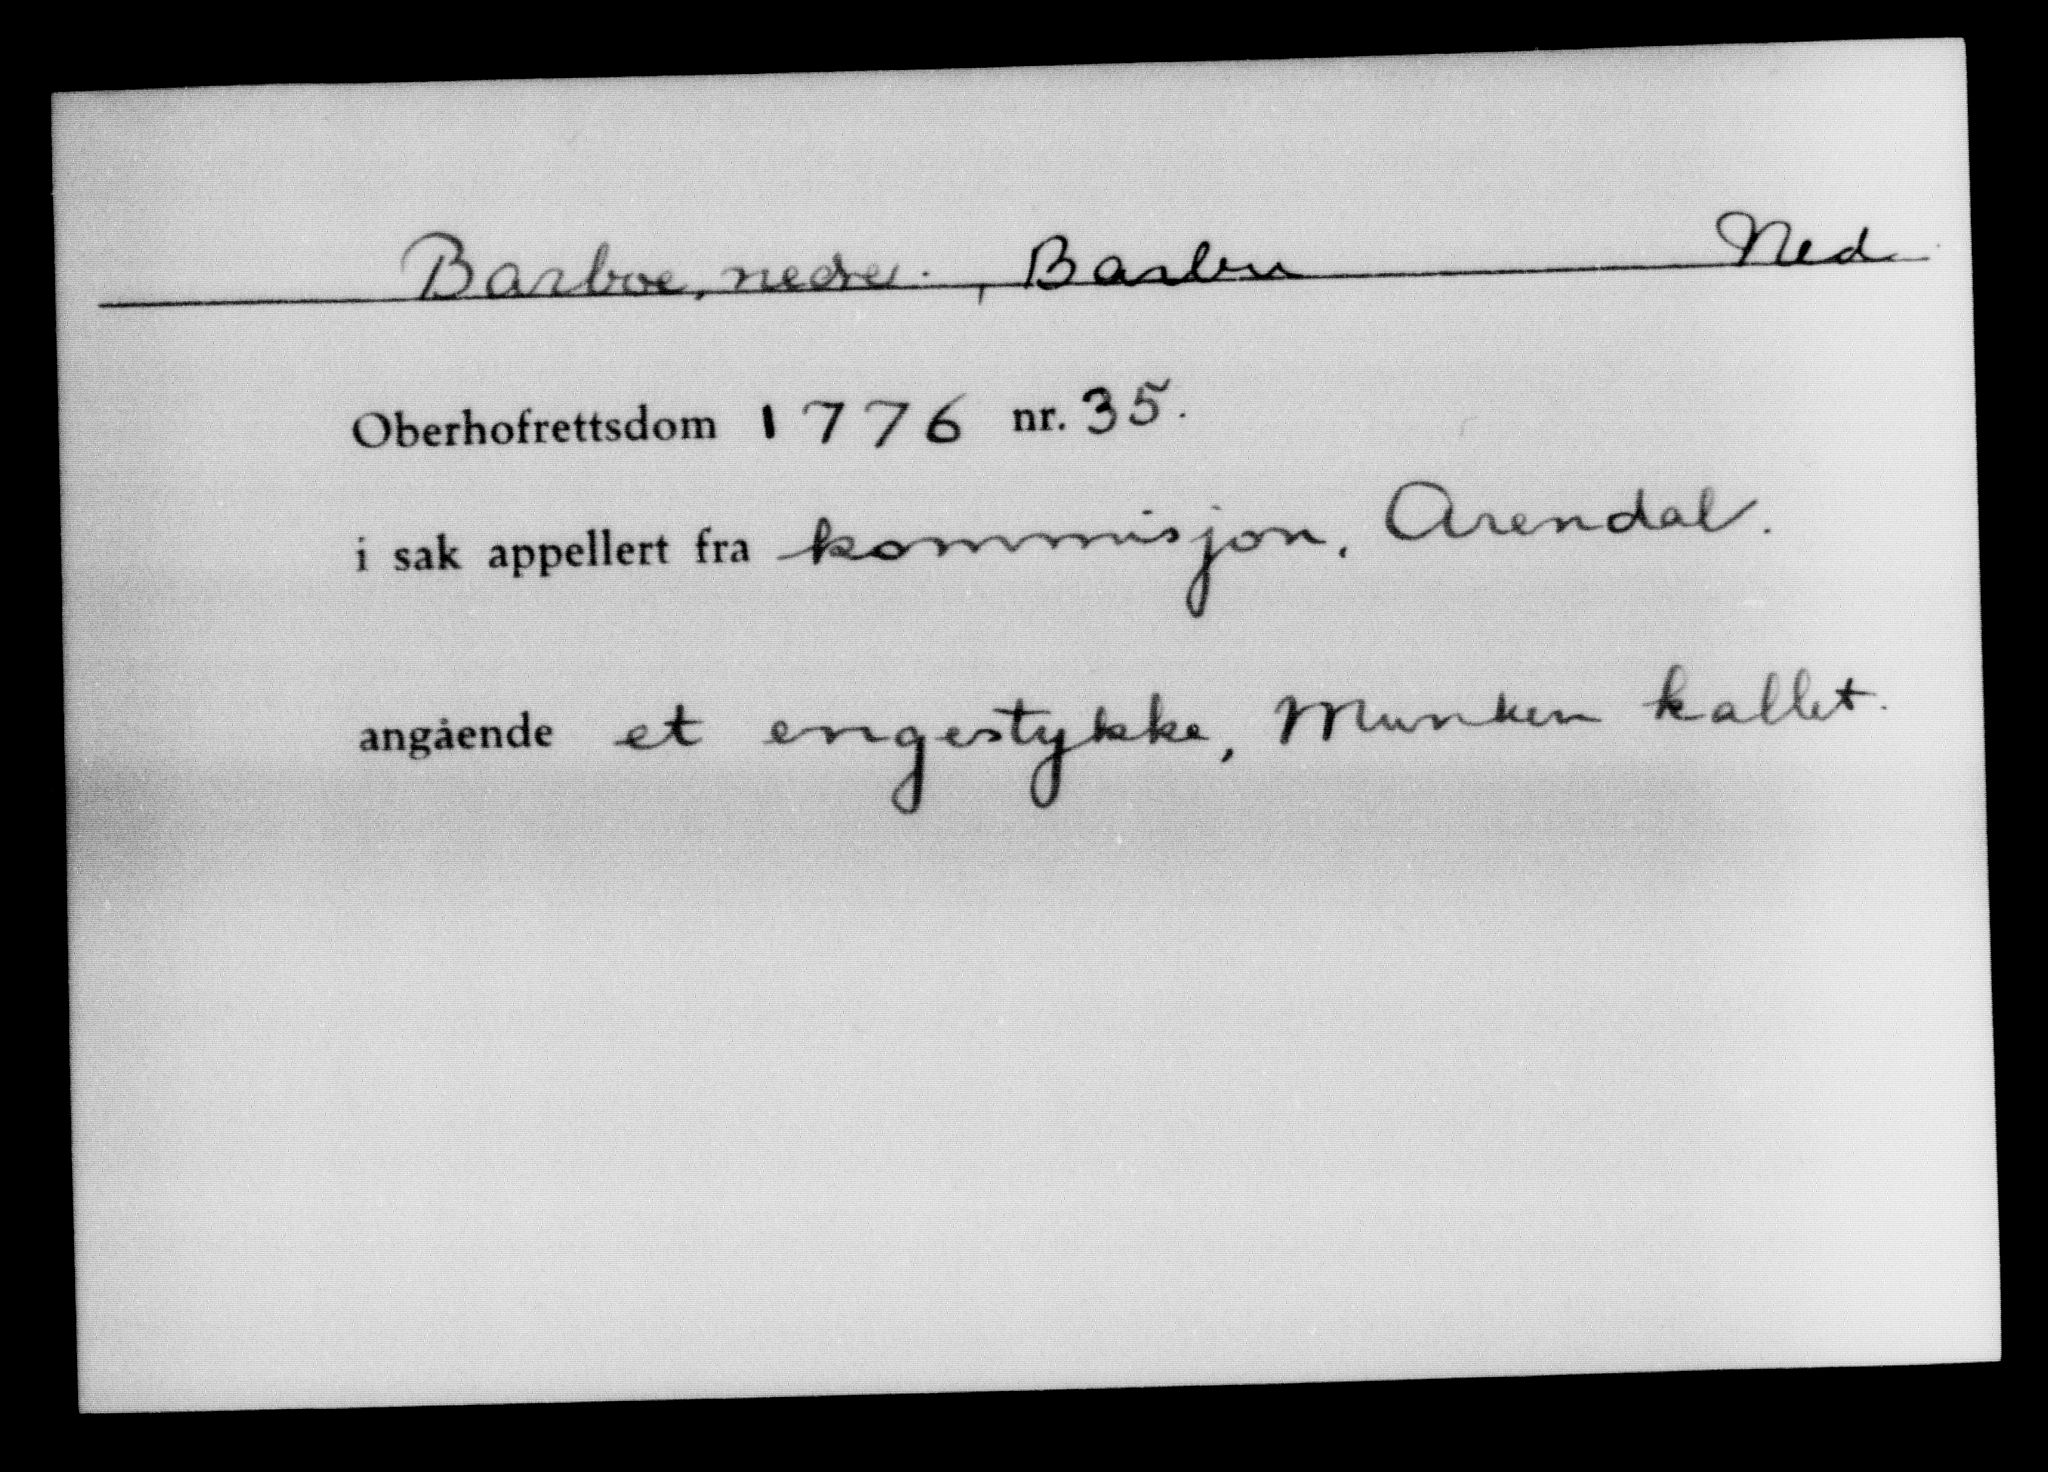 Barboe, nedre. , Barbu Ned
Oberhofrettsdom 1776 nr. 35.
i sak appellert fra kommisjon, Arendal.
angående et engestykke, Munken kallet.